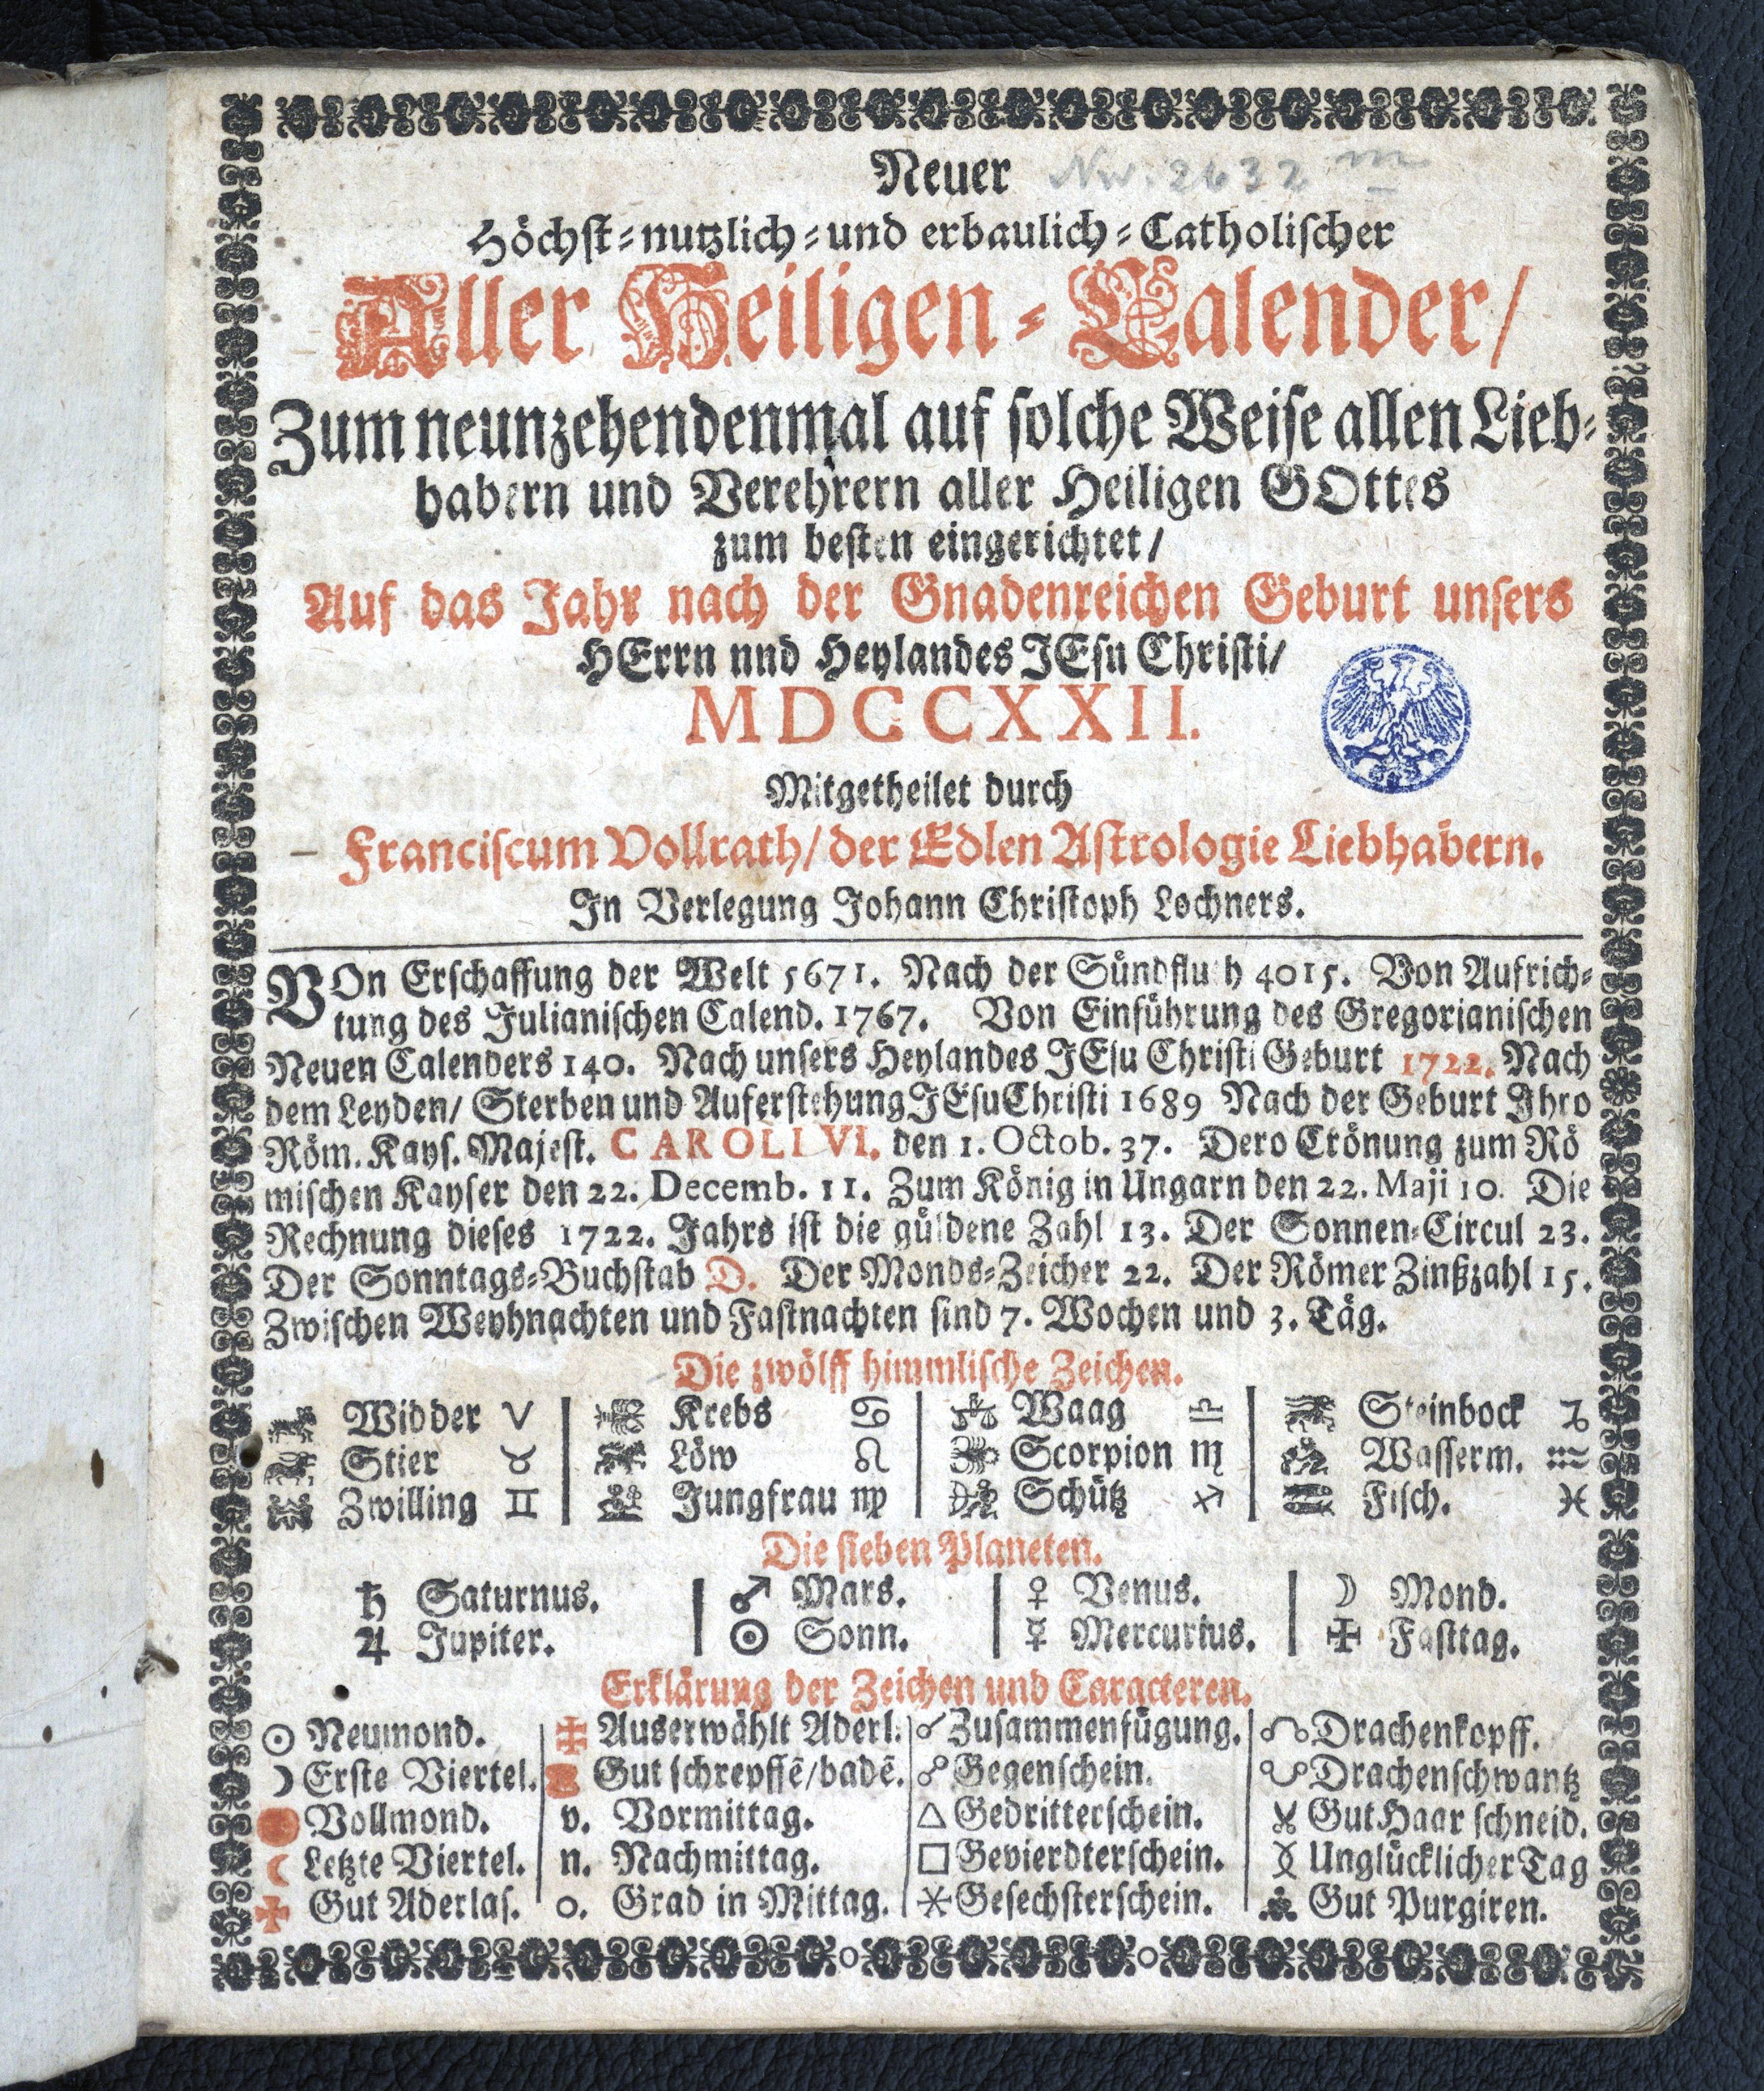 Neuer Nw. 2632 m
Höchst-nutzlich-und erbaulich-Catholischer
Aller Heiligen-Calender/
Zum neunzehendenmal auf solche Weise allen Lieb-
habern und Verehrern aller Heiligen GOttes
zum besten eingerichtet/
Auf das Jahr nach der Gnadenreichen Geburt unsers
HErrn nnd Heylandes JEsu Christi/
MDCCXXII.
Mitgetheilet durch
Franciscum Vollrath/ der Edlen Astrologie Liebhabern.
In Verlegung Johann Christoph Lochners.
VOn Erschaffung der Welt 5671. Nach der Sündfluth 4015. Von Aufrich-
tung des Julianischen Calend. 1767. Von Einführung des Gregorianischen
Neuen Calenders 140. Nach unsers Heylandes JEsu Christi Geburt 1722. Nach
dem Leyden/ Sterben und Auferstehung JEsu Christi 1689 Nach der Geburt Ihro
Röm. Kays. Majest. CAROLI VI. den 1. Octob. 37. Dero Crönung zum Rö
mischen Kayser den 22. Decemb. 11. Zum König in Ungarn den 22. Maji 10. Die
Rechnung dieses 1722. Jahrs ist die güldene Zahl 13. Der Sonnen-Circul 23.
Der Sonntags-Buchstab D. Der Monds-Zeicher 22. Der Römer Zinßzahl 15.
Zwischen Weyhnachten und Fastnachten sind 7. Wochen und 3. Täg.
Die zwölff himmlische Zeichen.
Widder ♈ Krebs ♋ Waag ♎ Steinbock ♑
Stier ♉ Löw ♌ Scorpion ♏ Wasserm. ♒
Zwilling ♊ Jungfrau ♍ Schütz ♐ Fisch. ♓
Die sieben Planeten.
♄ Saturnus. ♂ Mars. ♀ Venus. ☽ Mond.
♃ Jupiter. ☉ Sonn. ☿ Mercurius. ✠ Fasttag.
Erklärung der Zeichen und Caracteren.
Neumond. Auserwählt Aderl. Zusammenfügung. Drachenkopff.
Erste Viertel. Gut schrepffē/badē. Gegenschein. Drachenschwantz
Vollmond. v. Vormittag. △ Gedritterschein. Gut Haar schneid.
Letzte Viertel. n. Nachmittag. □ Gevierdterschein. Unglücklicher Tag
Gut Aderlas. o. Grad in Mittag. Gesechsterschein. Gut Purgiren.